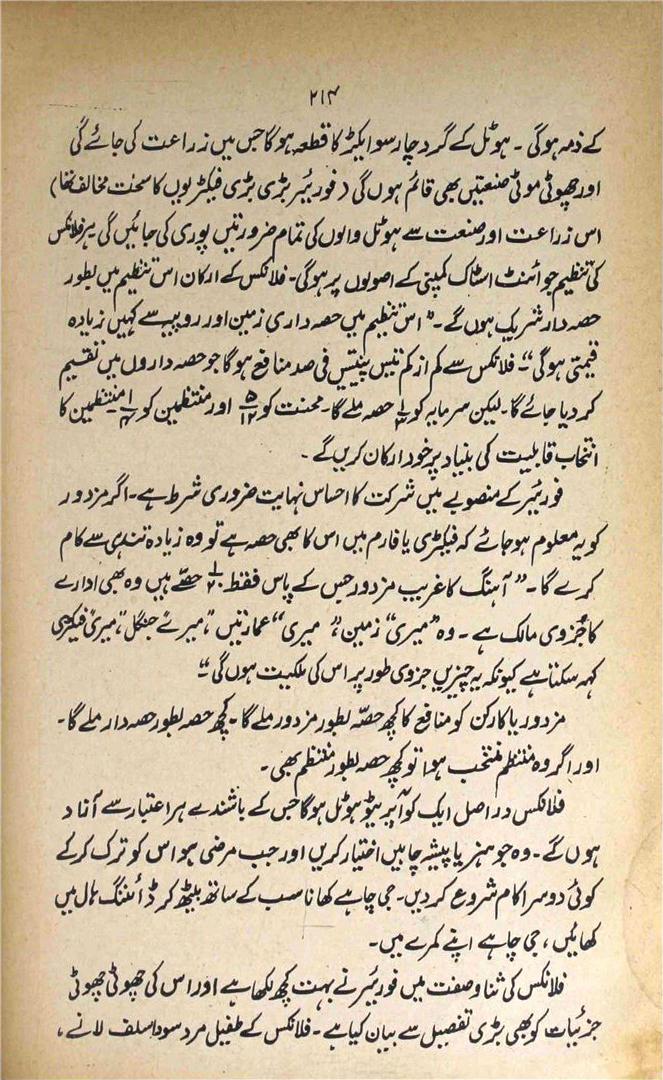 ۲۱۴
کے ذمہ ہوگی ۔ ہوٹل کے گرد چار سو ایکڑ کا قطعہ ہوگا جس میں زراعت کی جائے گی
اور چھوٹی موٹی صنعتیں بھی قائم ہوں گی (فورئیر بڑی بڑی فیکٹریوں کا سخت مخالف تھا)
اس زراعت اور صنعت سے ہوٹل والوں کی تمام ضرورتیں پوری کی جائیں گی ہر فلانکس
کی تنظیم جوائنٹ اسٹاک کمپنی کے اصولوں پر ہوگی۔ فلانکس کے ارکان اس تنظیم میں بطور
حصہ دار شریک ہوں گے۔ "اس تنظیم میں حصہ داری زمین اور روپیہ سے کہیں زیادہ
قیمتی ہوگی"۔ فلانکس سے کم از کم تیس پینتیس فی صد منافع ہوگا جو حصہ داروں میں تقسیم
کر دیا جائے گا۔ لیکن سرمایہ کو ۱/۳ حصہ ملے گا۔ محنت کو ۵/۱۲ اور منتظمین کو ۱/۴ منتظمین کا
انتخاب قابلیت کی بنیاد پر خود ارکان کریں گے ۔
فورئیر کے منصوبے میں شرکت کا احساس نہایت ضروری شرط ہے۔ اگر مزدور
کو یہ معلوم ہو جائے کہ فیکٹری یا فارم میں اس کا بھی حصہ ہے تو وہ زیادہ تندہی سے کام
کرے گا۔ "آہنگ کا غریب مزدور جس کے پاس فقط ۱/۲۰ حصّے ہیں وہ بھی ادارے
کا جُزوی مالک ہے ۔ وہ "میری" زمین"، میری" عمارتیں "، میرے جنگل"، میری فیکٹری
کہہ سکتا ہے کیونکہ یہ چیزیں جزوی طور پر اس کی ملکیت ہوں گی"۔
مزدور یا کارکن کو منافع کا کچھ حصّہ بطور مزدور ملے گا۔ کچھ حصہ بطور حصہ دار ملے گا۔
اور اگر وہ منتظم منتخب ہوا تو کچھ حصہ بطور منتظم بھی ۔
فلانکس دراصل ایک کوآپریٹو ہوٹل ہوگا جس کے باشندے ہر اعتبار سے آزاد
ہوں گے۔ وہ جو ہنر یا پیشہ چاہیں اختیار کریں اور جب مرضی ہو اس کو ترک کرکے
کوئی دوسرا کام شروع کردیں۔ جی چاہے کھانا سب کے ساتھ بیٹھ کر ڈائننگ ہال میں
کھائیں ، جی چاہے اپنے کمرے میں۔
فلانکس کی ثنا و صفت میں فورئیر نے بہت کچھ لکھا ہے اور اس کی چھوٹی چھوٹی
جزئیات کو بھی بڑی تفصیل سے بیان کیا ہے ۔ فلانکس کے طفیل مرد سودا سلف لانے ،